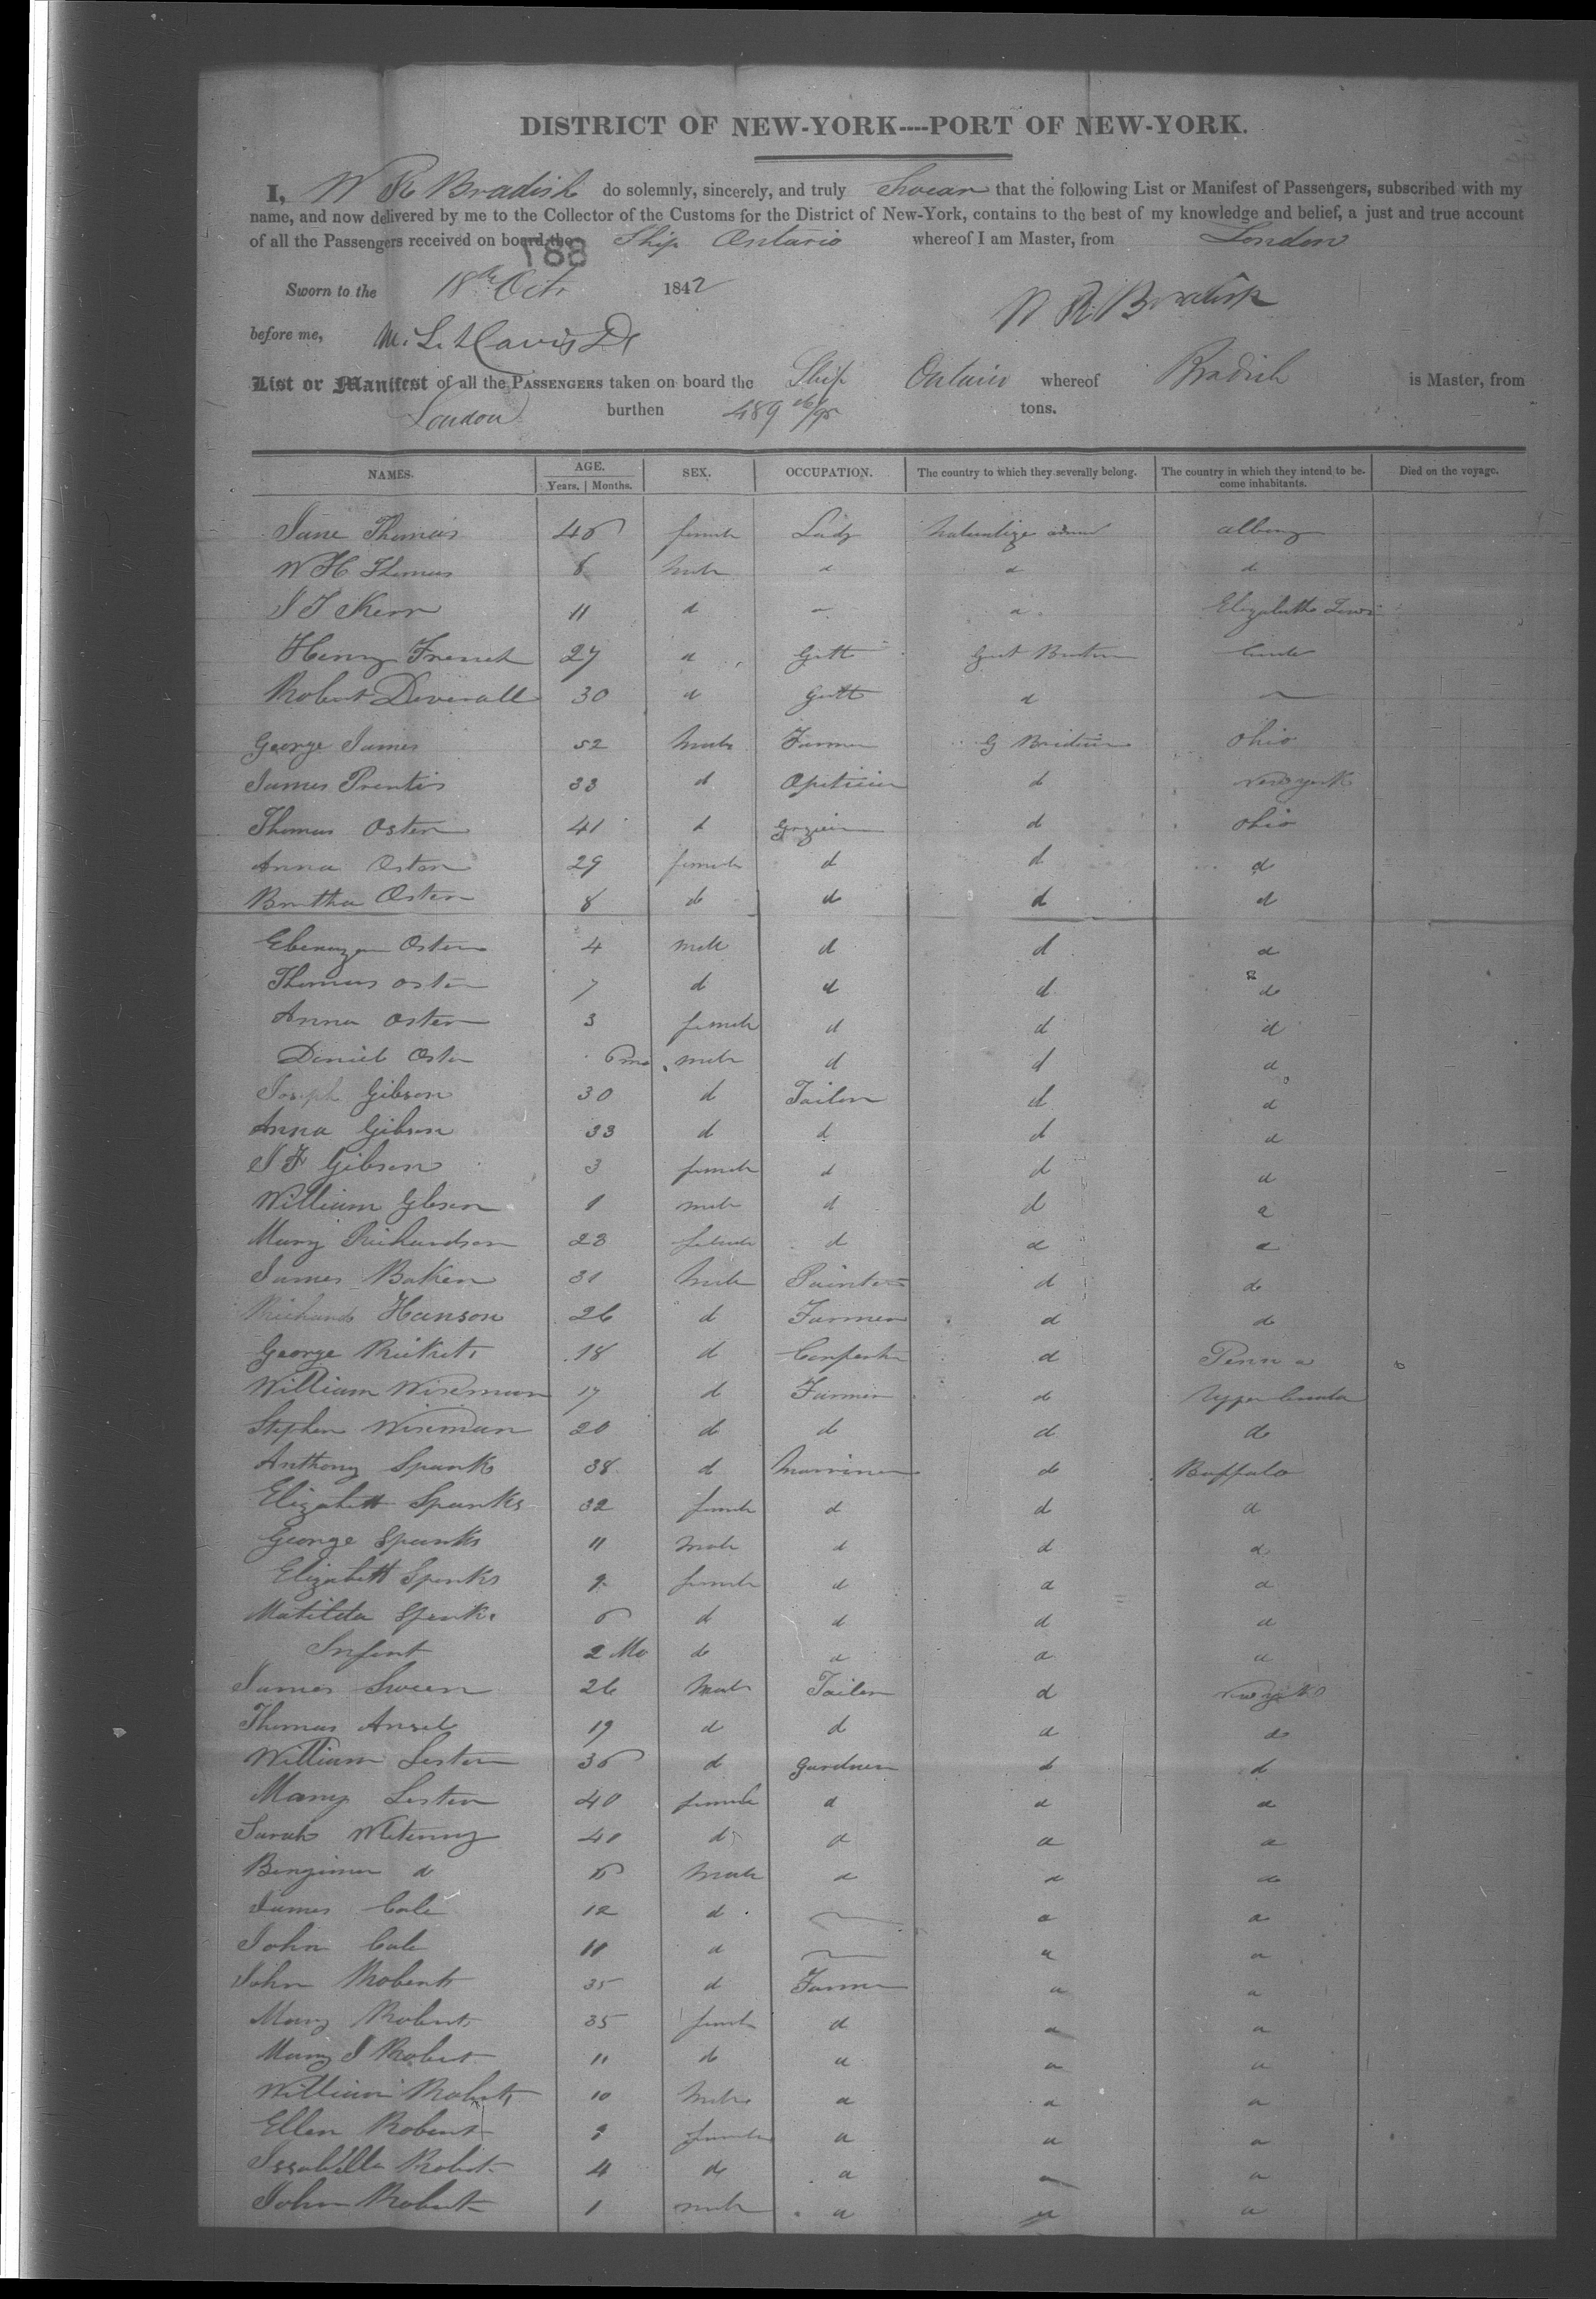 DISTRICT OF NEW-YORK----PORT OF NEW-YORK.
I, W R Bradish do solemnly, sincerely, and truly Swear that the following List or Manifest of Passengers, subscribed with my
name, and now delivered by me to the Collector of the Customs for the District of New-York, contains to the best of my knowledge and belief, a just and true account
of all the Passengers received on board the Ship Ontario whereof I am Master, from London
881
Sworn to the 18th Octr 1842
W R Bradish
before me, M. L. Davis
List or Manifest of all the PASSENGERS taken on board the Ship Ontario whereof Bradish is Master, from
London burthen 489 tons.
NAMES. AGE. SEX. OCCUPATION. The country to which they severally belong. The country in which they intend to be- Died on the voyage.
Years. | Months. come inhabitants.
Jane Thomas 46 female Lady Albany
W H Thomas 8 male d d d
J T Kerr 11 d Elizabeth Town
Henry French 27 d Gentt Great Britain
Robert Deverall 30 d Gentt d
George James 52 Male Farmer G Britain Ohio
James Prentis 33 d Optician d New york
Thomas Osten 41 d Grazier d Ohio
Anna Osten 29 female d d d
Bertha Osten 8 do d d d
Ebenezer Osten 4 male d d d
Thomas Osten 7 d d d do
Anna Osten 3 female d d d
Daniel Osten 6 mo male d d d
Joseph Gibson 30 d Tailor d d
Anna Gibson 33 d d d d
J F Gibson 3 female d d d
William Gibson 1 male d d d
Mary Richardson 23 female d d d
James Baker 31 Male Painter d do
Richard Hanson 26 d Farmer d do
George Rickets 18 d Carpenter d Penn a
William Wiseman 17 d Farmer d Upper Canada
Stephen Wiseman 20 do do d do
Anthony Spanks 38 d Marriner do Buffalo
Elizabett Spanks 32 female d d d
George Spanks 11 Male d d d
Elizabett Spenks 9 female d d d
Matilda Spenks 6 d d d d
Infant 2 Mo do d d d
James Sween 26 Male Tailor d New york
Thomas Ansel 19 d d d d
William Lester 36 d Gardner d d
Mary Lester 40 female d d d
Sarah 40 d d d d
Benjimen do 6 Male d d do
James Cole 12 d d d
John Cole 11 d d d
John Roberts 35 d Farmer d d
Mary Roberts 35 female d d d
Mary J Robert 11 do d d d
William Roberts 10 Male d d d
Ellen Robert 9 female d d d
Issabella Robert 4 do d d d
John Robert 1 male d d d